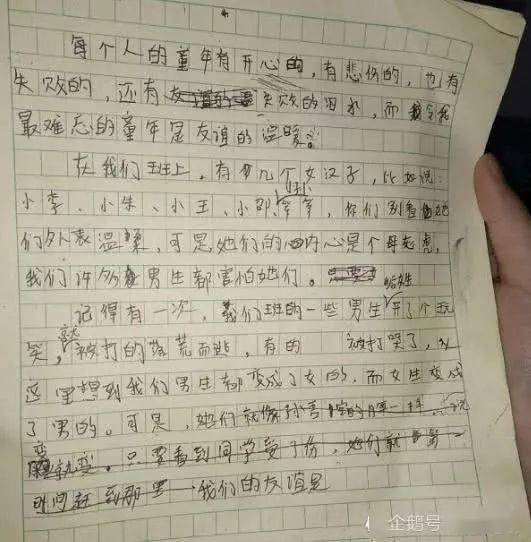 每个人的童年有开心的，有悲伤的，也有
失败的，还有失败的泪水，而令我
最难忘的童年是友谊的温暖。
在我们班上，有几个女汉子，比如说：
小李、小朱、小王、小邓、小等等，你们别看她
们外表温柔，可是她们的内心是个母老虎，
我们许多男生都害怕她们。
记得有一次，我们班的一些男生给女生开了个玩
笑，就被打的落荒而逃，有的 被打哭了，从
这里想到我们男生都变成了女的，而女生变成
了男的。可是，她们就像孙悟空的脾一样，说
变就变。只要看到同学受了伤，她们就第一
时间赶到那里 我们的友谊是
企鹅号